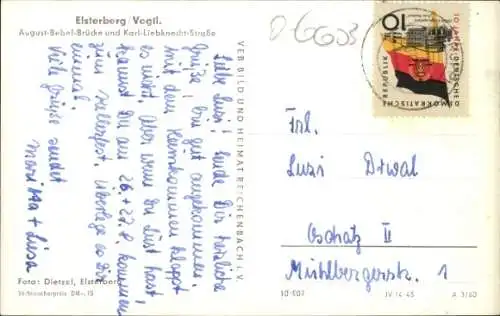 Elsterberg/Vogtl.
August-Bebel-Brücke und Karl-Liebknecht-Straße
D6603
VEB BILD UND HEIMAT REICHENBACH i. V.
Liebe Lusi! Sende Dir herzliche
Grüße! Bin gut angekommen.
mit dem kommen klappt
es nicht. Aber wenn Du Lust hast,
kannst Du am 26.+27.8. kommen
zum . Überlege es Dir
einmal.
Viele Grüße sendet
Maritta + Luisa
10 JAHRE DEUTSCHE
DEMOKRATISCHE
REPUBLIK
10
Frl.
Lusi Drwal
Oschatz II
Mühlbergerstr. 1
Foto: Dietzel, Elsterberg
Verbraucherpreis DM -,15
IV/14/45
A 3/60